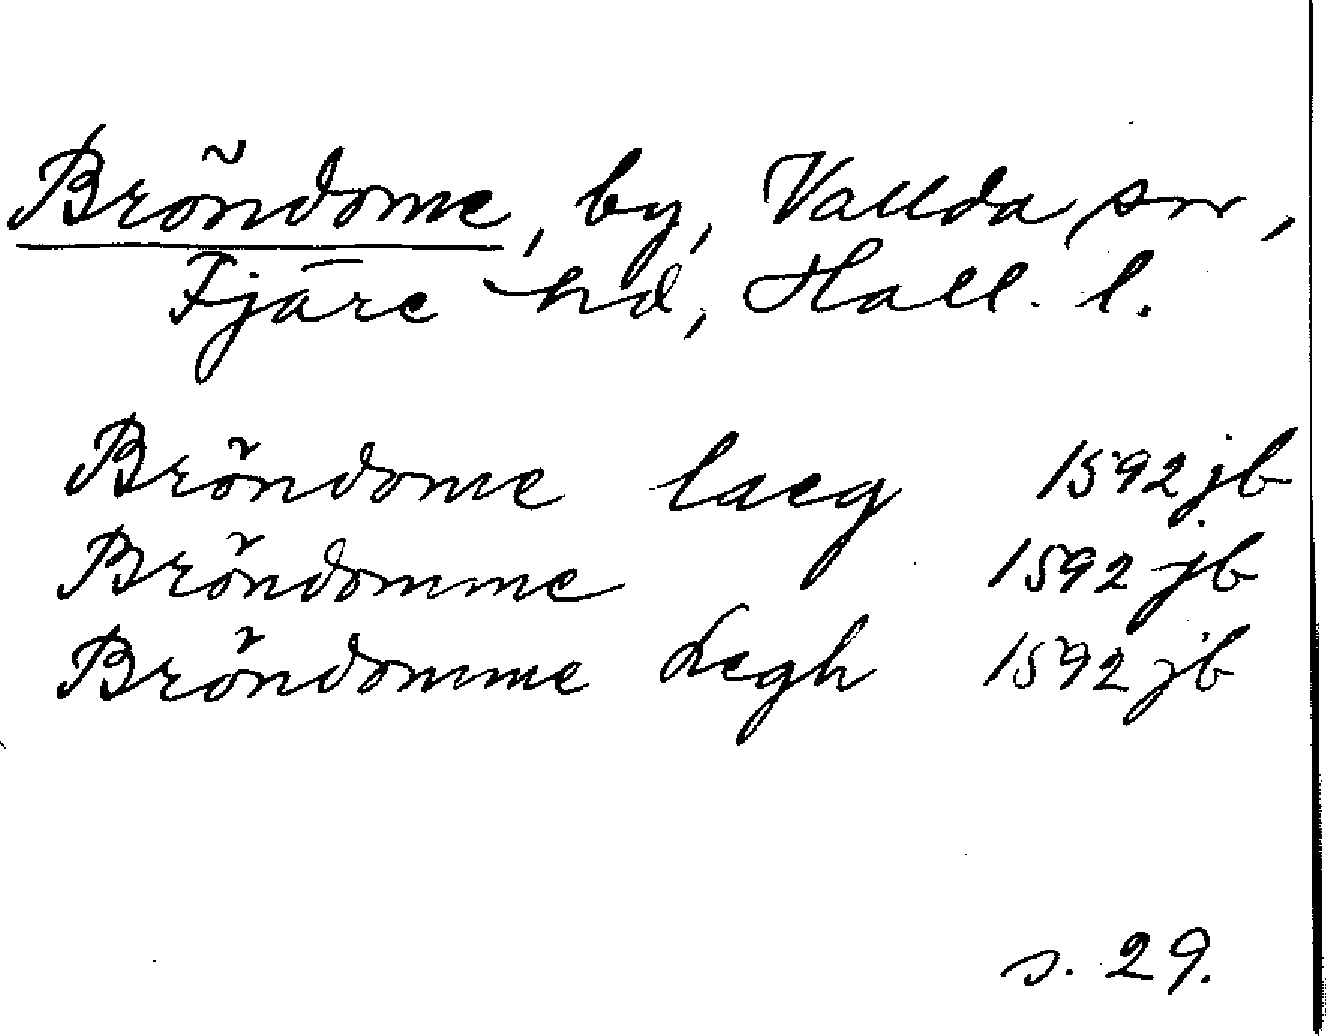 Bröndome, by, Vallda sn,
Fjäre hd, Hall. l.
Bröndome laeg 1592 jb
Bröndomme 1592 jb
Bröndomme Legh 1592 jb
s. 29.